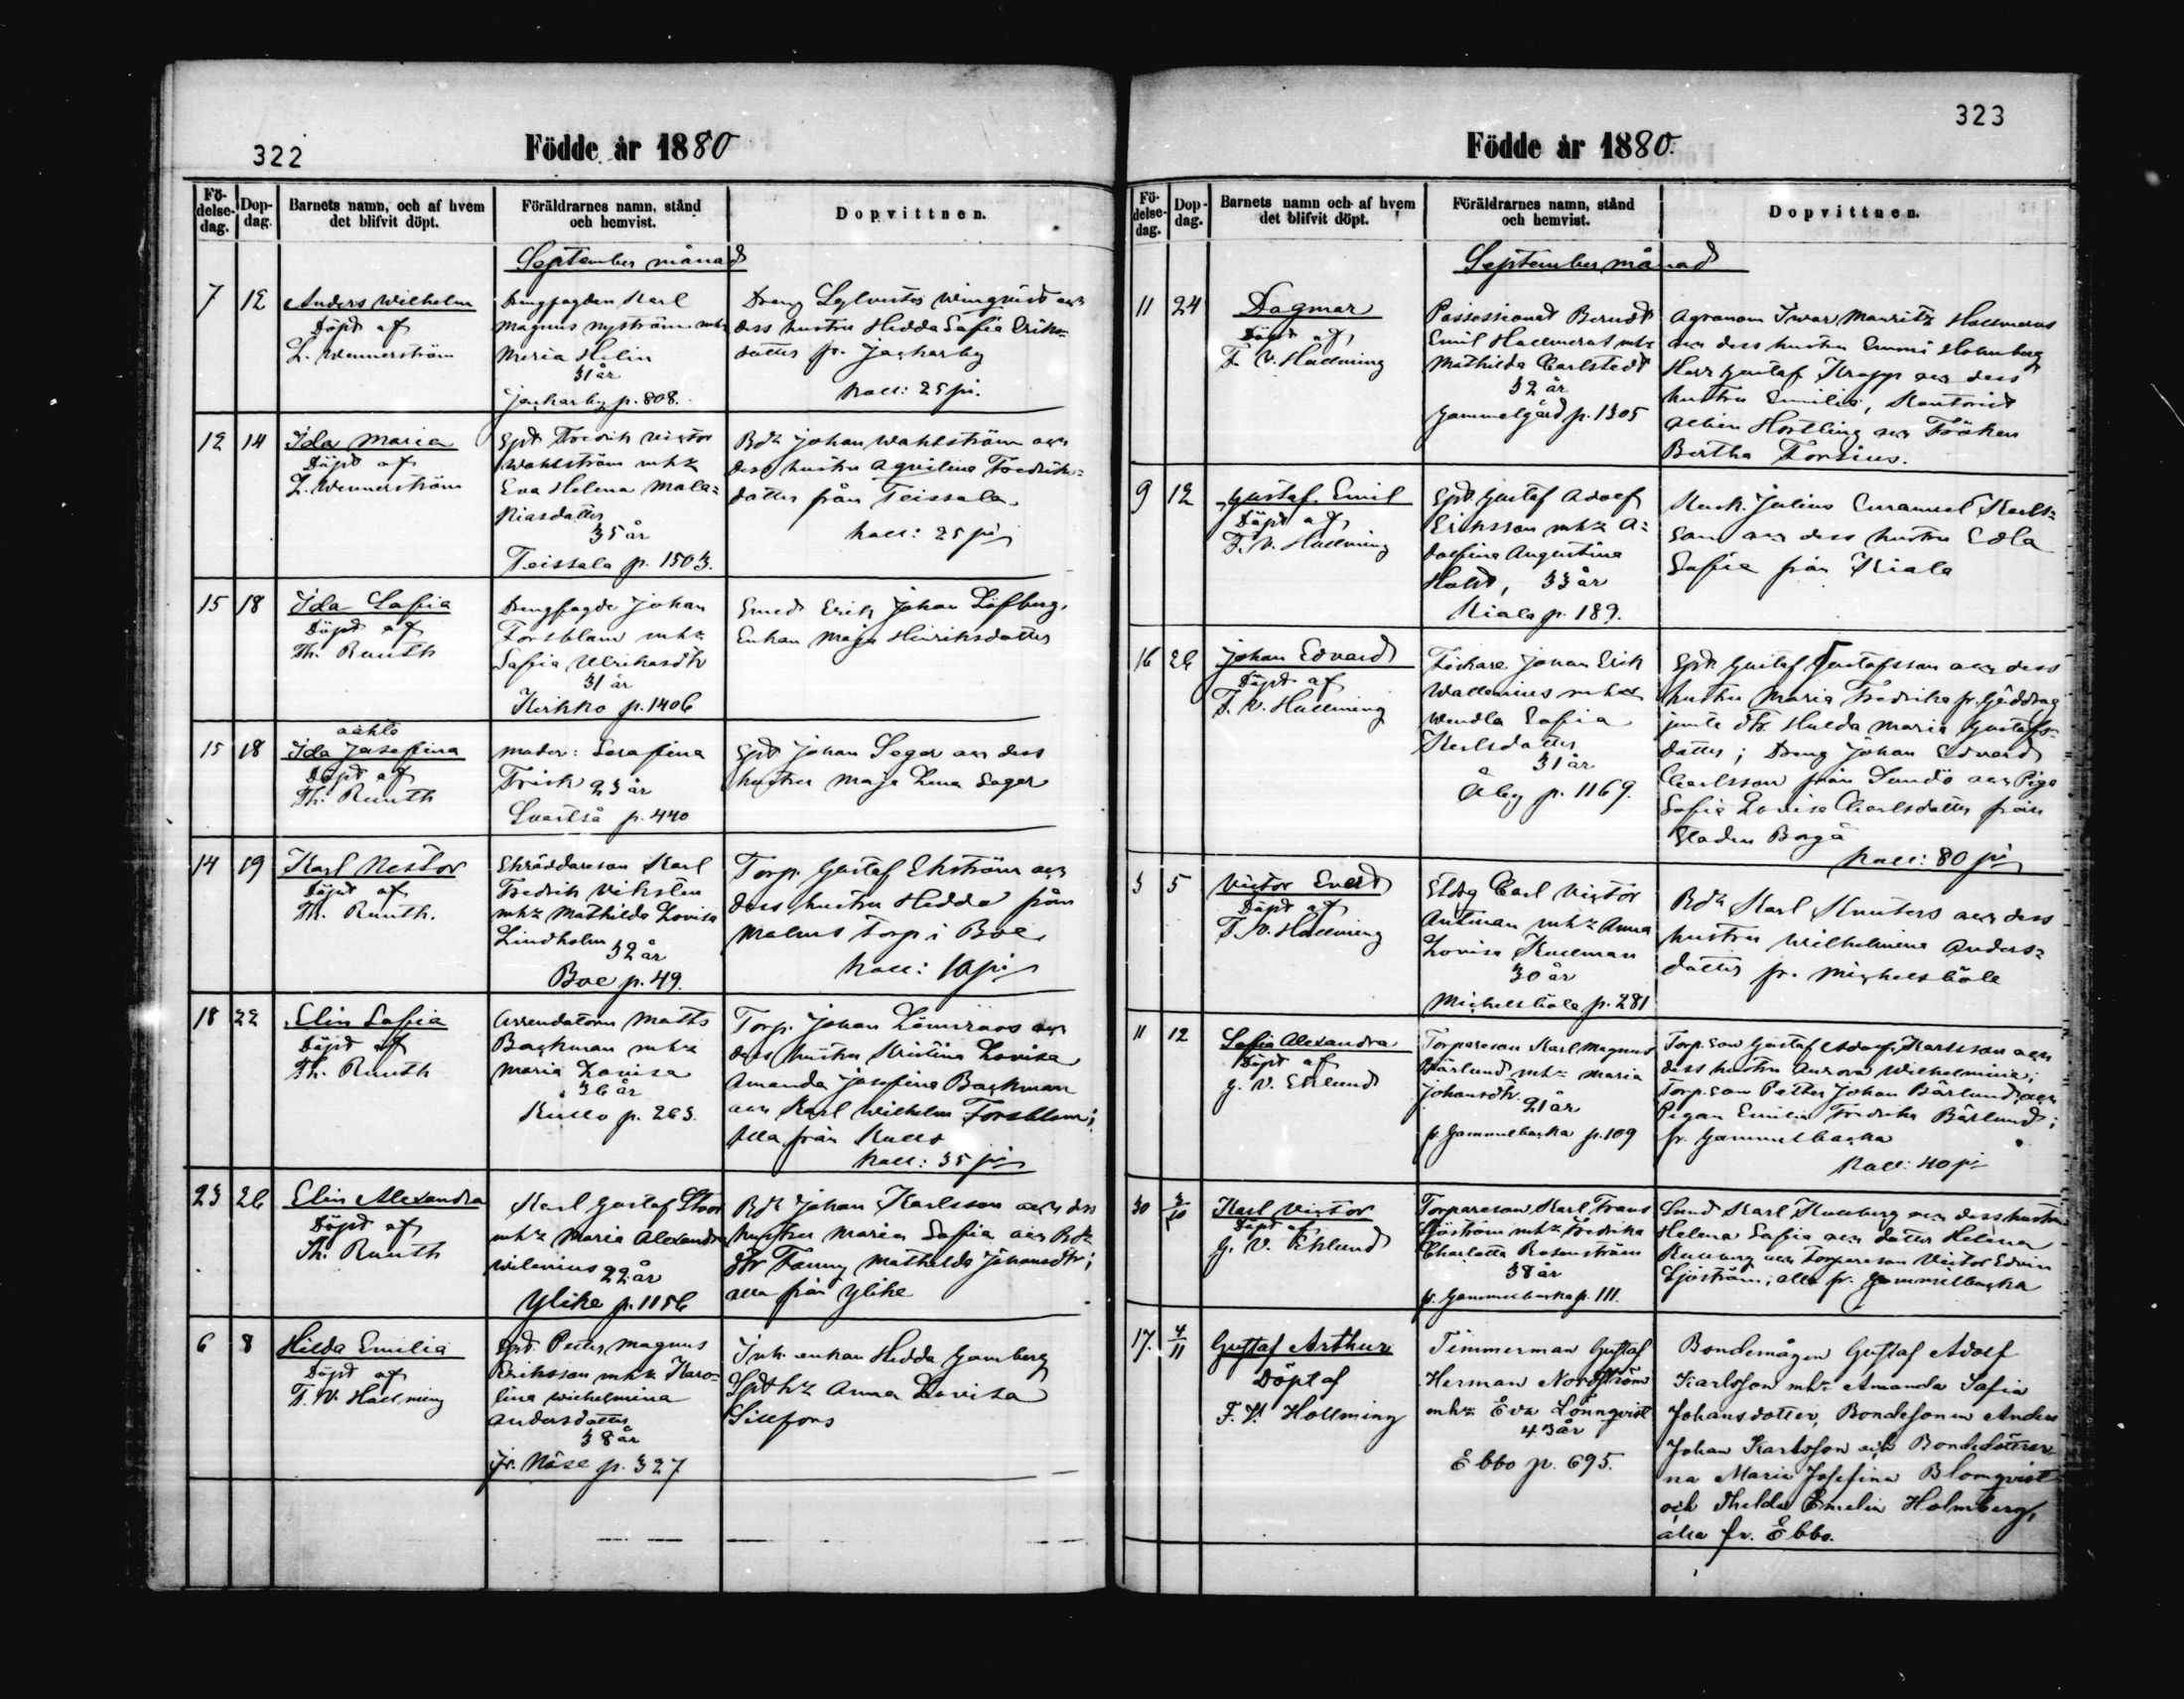 322
Födde år 1880
Fö-
delse-
dag.
Dop-
dag.
Barnets namn, och af hvem
det blifvit döpt.
Föräldrarnes namn, stånd
och hemvist.
Dopvittnen.
September månad
7 12
Anders Wilhelm
Döpt af
L. Wennerström
Drengfogden Karl
Magnus Nyström mhz
Maria Helin
31 år
Jackarby p. 808.
Dreng Sylvester Wingqvist och
dess hustru Hedda Sofia Eriks-
dotter fr. Jackarby
koll: 25 pi.
12 14
Ida Maria
Döpt af
L. Wennerström
Spdr Fredrik Victor
Wahlström mhz
Eva Helena Mala-
kiasdotter
35 år
Teissala p. 1503.
Bdr Johan Wahlström och
dess hustru Aqvilina Fredriks-
dotter från Teissala
koll: 25 pi
15 18
Ida Sofia
Döpt af
Th. Reuth
Drengfogde Johan
Forsblom mhz
Sofia Ulrikasdtr
31 år
Kirkko p. 1406
Smed Erik Johan Löfberg,
Enkan Maja Henriksdotter
15 18
oäkta
Ida Josefina
Döpt af
Th. Reuth
moder: Serafina
Frisk 23 år
Svartså p. 440
Spdr Johan Seger och dess
hustru Maja Lena Seger
14 19
Karl Nestor
Döpt af
Th. Reuth.
Skräddareson Karl
Fredrik Viksten
mhz Mathilda Lovisa
Lindholm 32 år
Boe p. 49.
Torp. Gustaf Ekström och
dess hustru Hedda från
Malms torp i Boe
koll: 10 pi
18 22
Elin Sofia
Döpt af
Th. Reuth
Arrendatorn Matts
Backman mhz
Maria Lovisa
36 år
Kullo p. 263.
Torp. Johan och
dess hustru Kristina Lovisa
Amanda Josefina Backman
och Karl Wilhelm Forsblom;
alla från Kullo
koll: 35 pi
23 26
Elin Alexandra
Döpt af
Th. Reuth
Karl Gustaf Stoor
mhz Maria Alexandra
Wilenius 22 år
Ylike p. 1156
Bdr Johan Karlsson och dess
hustru Maria Sofia och Bdr
dtr Fanny Mathilda Johansdtr;
alla från Ylike
6 8
Hilda Emilia
Döpt af
F. W. Hallming
Spdr Petter Magnus
Eriksson mhz Karo-
lina Wilhelmina
Andersdotter
38 år
fr. Näse p. 327
Inh. enkan Hedda Gamberg
Spdr hz Anna Lovisa
Sillfors
323
Födde år 1880.
Fö-
delse-
dag.
Dop-
dag.
Barnets namn och af hvem
det blifvit döpt.
Föräldrarnes namn, stånd
och hemvist.
Dopvittnen.
September månad
11 24
Dagmar
Döpt af
F. V. Hallming
Possessionat Berndt
Emil Hallmerus mhz
Mathilda Carlstedt
32 år
Gammelgård p. 1305
Agronom Iwar Mauritz Hallmerus
och dess hustru Emmi Holmberg
Herr Gustaf Krapp och dess
hustru Emilia, Kontorist
Albin Hertling och Fröken
Bertha Forsius.
9 12
Gustaf Emil
Döpt af
F. V. Hallming
Spdr Gustaf Adolf
Eriksson mhz A-
dolfina Augustina
Holst, 33 år
Kiala p. 189.
Kusk. Julius Emanuel Karls-
son och dess hustru Edla
Sofia från Kiala
16 26
Johan Edvard
Döpt af
F. V. Hallming
Fiskare Johan Erik
Wallenius mhz
Wendla Sofia
Karlsdotter
31 år
Åby p. 1169.
Spdr Gustaf Gustafsson och dess
hustru Maria Fredrika fr. Gäddrag
jemte dtr. Hulda Maria Gustafs-
dotter; Dreng Johan Edvard
Carlsson från Sundö och Piga
Sofia Lovisa Charlsdotter från
Staden Borgå
koll: 80 pi
3 5
Victor Evert
Döpt af
F. W. Hallming
Carl Victor
Antman mhz Anna
Lovisa Kullman
30 år
Mickelsböle p. 281
Bdr Karl Knuters och dess
hustru Wilhelmina Anders-
dotter fr. Mickelsböle
11 12
Sofia Alexandra
Döpt af
G. V. Eklund
Torpareson Karl Magnus
Bärlund mhz Maria
Johansdtr.
21 år
fr. Gammelbacka p. 109
Torp.son Gustaf Adolf Karlsson och
dess hustru Aurora Wilhelmina;
Torp.son Petter Johan Bärlund och
Pigan Emilia Fredrika Bärlund;
fr. Gammelbacka
koll: 40 pi
30 3/10
Karl Victor
Döpt af
G. V. Eklund
Torpareson Karl Frans
Sjöström mhz Fredrika
Charlotta Rosenström
38 år
fr. Gammelbacka p. 111.
Smed Karl Kullberg och dess hustru
Helena Sofia och dotter Helena
Kullberg och Torpareson Victor Edvin
Sjöström; alla fr. Gammelbacka
17. 4/11
Gustaf Arthur
Döpt af
F. V. Hallming
Timmerman Gustaf
Herman Nordström
mhz Eva Lönnqvist
43 år
Ebbo p. 695.
Bondemågen Gustaf Adolf
Karlsson mhz Amanda Sofia
Johansdotter, Bondesonen Anders
Johan Karlsson och Bondedöttrar
na Maria Josefina Blomqvist
och Thilda Emelia Holmberg,
alla fr. Ebbo.